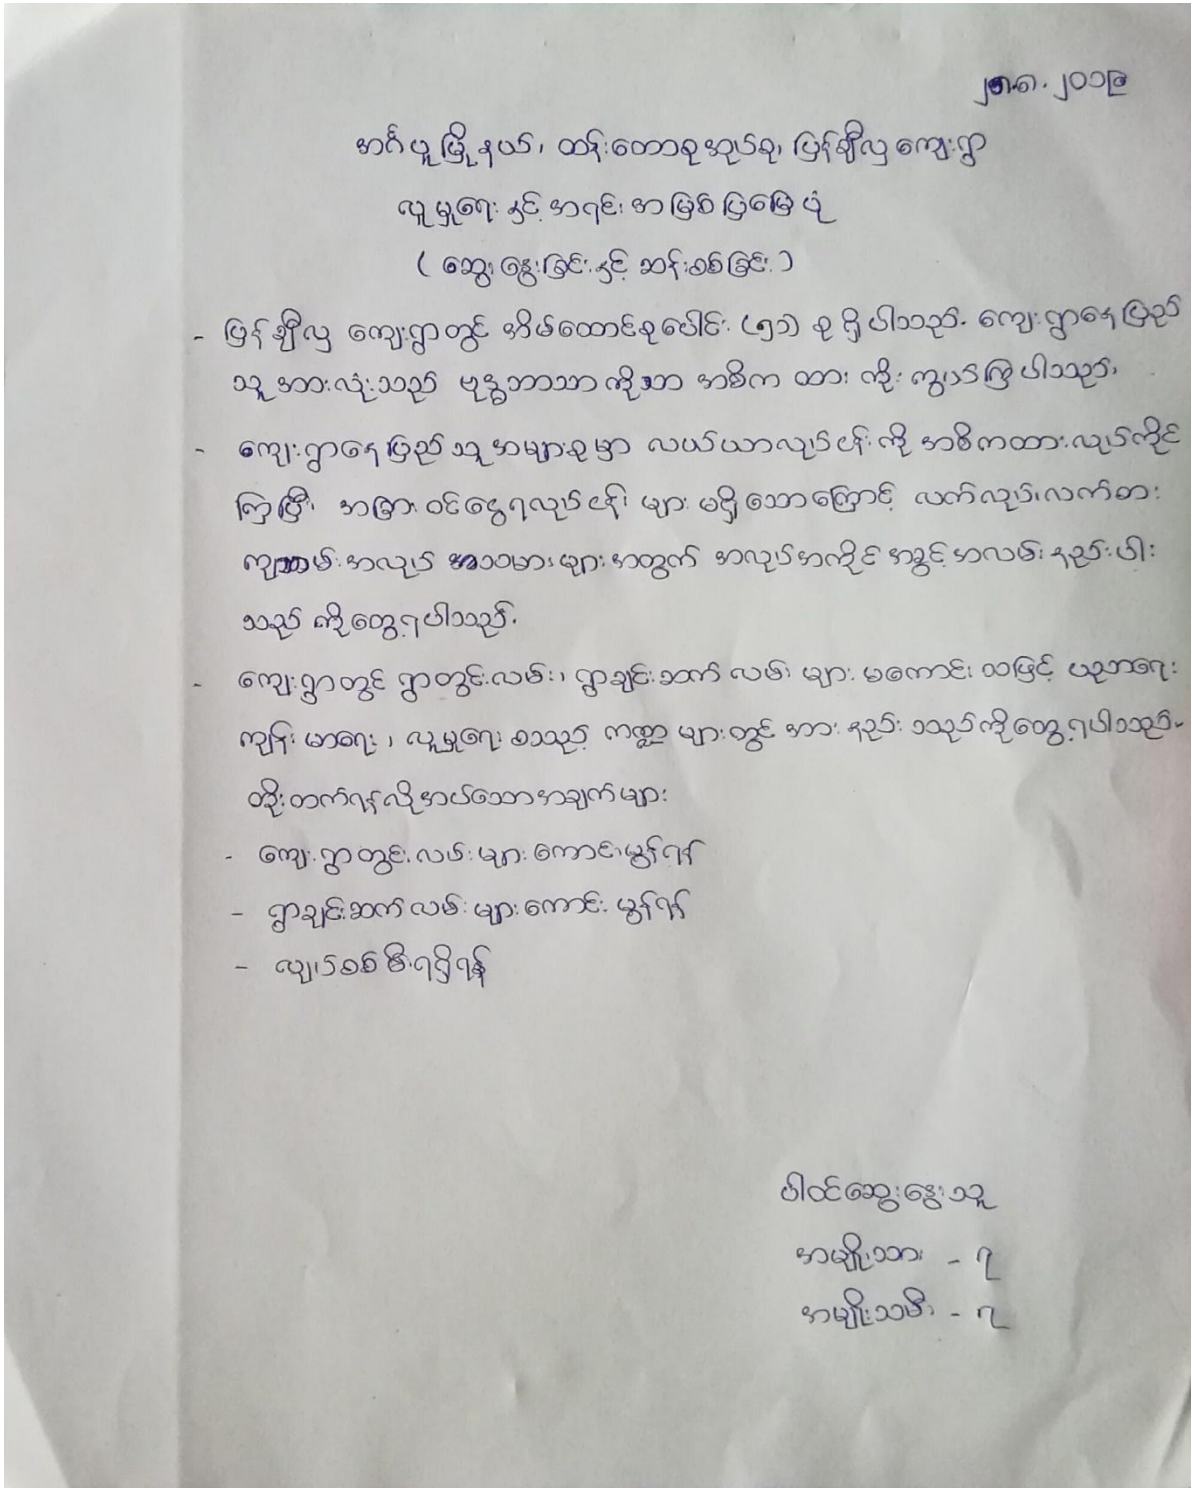 ၂၈.၈.၂၀၁၉
အင်္ဂပူမြို့နယ်၊ ထန်းတောစုအုပ်စု၊ ပြန်ချီလှကျေးရွာ
လူမှုရေးနှင့်အရင်းအမြစ်ပြမြေပုံ
(ဆွေးနွေးခြင်းနှင့် ဆန်းစစ်ခြင်း)
- ပြန်ချီလှ ကျေးရွာတွင် အိမ်ထောင်စုပေါင်း (၅၁) စု ရှိပါသည်. ကျေးရွာနေပြည်
သူအားလုံးသည် ဗုဒ္ဓဘာသာကိုသာ အဓိကထား ကိုးကွယ်ကြပါသည်၊
- ကျေးရွာနေပြည်သူအများစုမှာ လယ်ယာလုပ်ငန်းကို အဓိကထားလုပ်ကိုင်
ကြပြီး အခြားဝင်ငွေရလုပ်ငန်းများ မရှိသောကြောင့် လက်လုပ်လက်စား
ကျဘမ်းအလုပ် သမားများအတွက် အလုပ်အကိုင် အခွင့်အလမ်း နည်းပါး
သည် ကိုတွေ့ရပါသည်.
- ကျေးရွာတွင် ရွာတွင်းလမ်း၊ ရွာချင်းဆက်လမ်းများ မကောင်းသဖြင့် ပညာရေး
ကျန်းမာရေး၊ လူမှုရေး စသည့် ကဏ္ဍများတွင် အားနည်းသည်ကိုတွေ့ရပါသည်.
တိုးတက်ရန်လိုအပ်သောအချက်များ
- ကျေးရွာတွင်းလမ်းများကောင်းမွန်ရန်
- ရွာချင်းဆက်လမ်းများကောင်းမွန်ရန်
- လျှပ်စစ်မီးရရှိရန်
ပါဝင်ဆွေးနွေးသူ
အမျိုးသား - ၇
အမျိုးသမီး - ၇